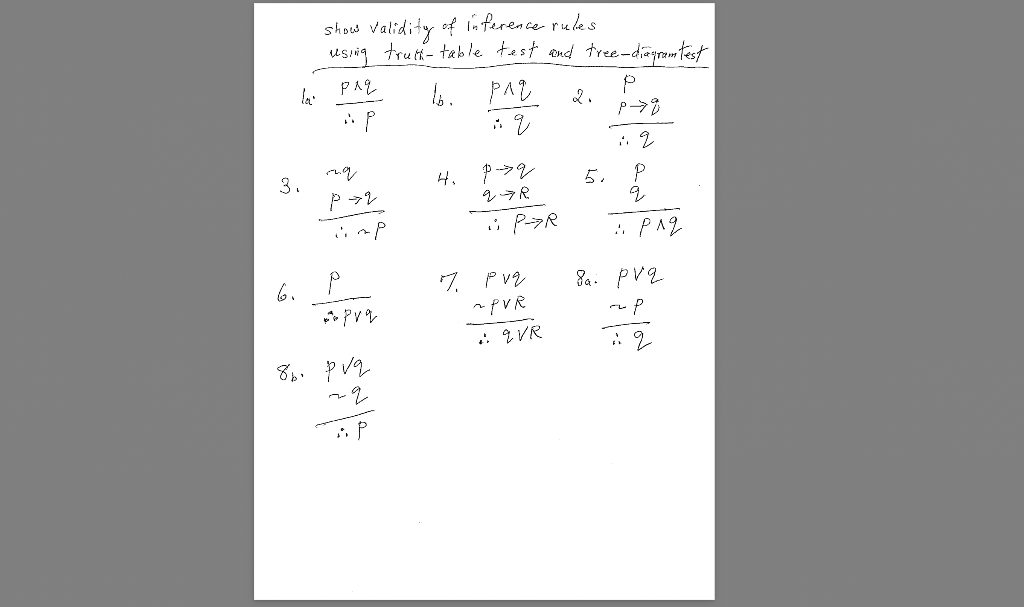 show validity of inference rules
using truth-table test and tree-diagram test
1a. p∧q
∴ p
1b. p∧q
∴ q
2. p
p→q
∴ q
3. ~q
p→q
∴ ~p
4. p→q
q→R
∴ p→R
5. p
q
∴ p∧q
6. p
∴ p∨q
7. p∨q
~p∨R
∴ q∨R
8a. p∨q
~p
∴ q
8b. p∨q
~q
∴ p